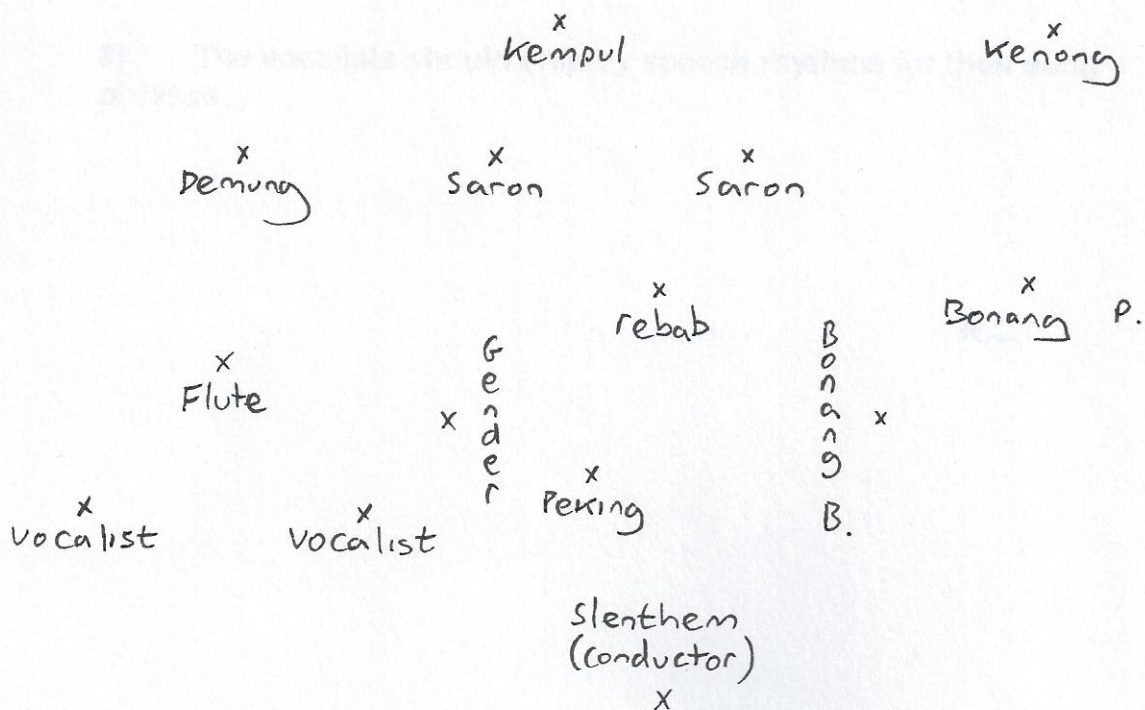 x x
Kempul Kenong
x x x
Demung Saron Saron
x x
rebab Bonang P.
x
Flute
x Gender
Bonang B. x
x
Peking
x x
vocalist vocalist
Slenthem
(conductor)
x